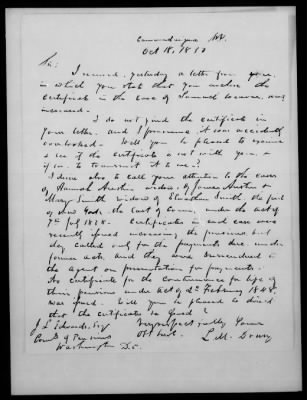 Canandaigua N.Y.
Oct 18, 1850
Sir:
I received, yesterday a letter from you,
in which you state that you enclose the
certificate in the case of Samuel
increased.
I do not find the certificate in
your letter, and I presume it was accidentally
overlooked. Will you be pleased to examine
& see if the certificate is not with you, &
if so, to transmit it to me?
I desire also to call your attention to the cases
of Hannah Austin widow of James Austin &
Mary Smith widow of Smith, the first
of New York, the last of under the act of
7th July 1838. Certificates in each case were
recently issued increasing the pensions but
they called only for the payments due under
former acts, and they were surrendered to
the agent on presentation for payments.
No certificate for the continuance for life of
their pensions under act of 2d February 1848
was issued. Will you be pleased to direct
that the certificates be issued?
J L Edwards, Esq Very respectfully Yours
Comr of Pensions Obt Servt
Washington D.C. L. M. Drury